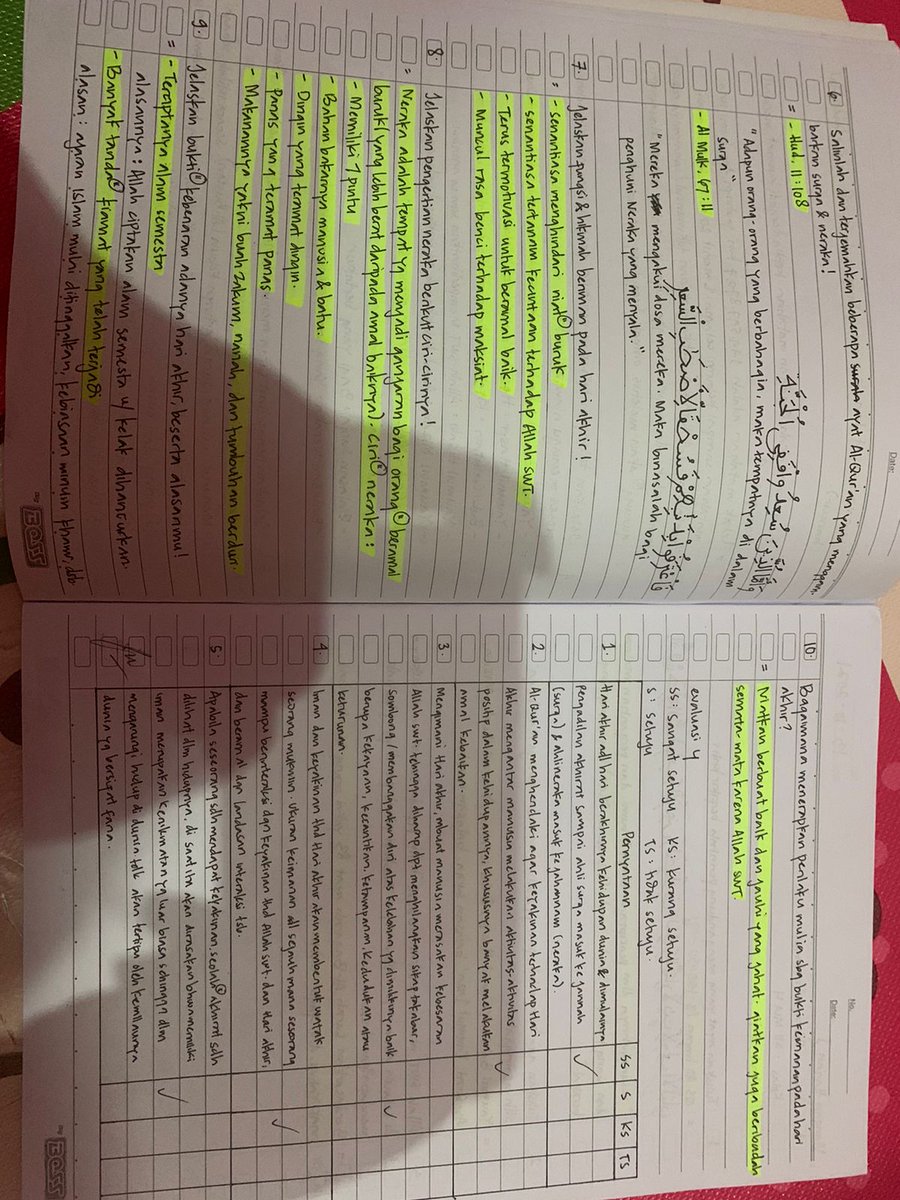 Date:
6. Salinlah dan terjemahkan beberapa surata ayat Al-Qur'an yang menggam-
barkan surga & neraka!
= - Hud, 11:108
وَأَمَّا الَّذِيْنَ سُعِدُوْا فَفِى الْجَنَّةِ
"Adapun orang-orang yang berbahagia, maka tempatnya di dalam
surga"
- Al Mulk, 67:11
"Mereka mengakui dosa mereka. Maka binasalah bagi
penghuni Neraka yang menyala."
7. Jelaskan fungsi & hikmah beriman pada hari akhir!
= - senantiasa menghindari niat² buruk
- senantiasa tertanam kecintaan terhadap Allah SWT.
- Terus termotivasi untuk beramal baik.
- Muncul rasa benci terhadap maksiat.
8. Jelaskan pengertian neraka berikut ciri-cirinya!
= Neraka adalah tempat yg menjadi ganjaran bagi orang² beramal
buruk (yang lebih berat daripada amal baiknya). Ciri² neraka:
- Memiliki 7 pintu
- Bahan bakarnya manusia & batu.
- Dingin yang teramat dingin.
- Panas yang teramat panas.
- Makanannya yakni buah zakum, nanah, dan tumbuhan berduri.
9. Jelaskan bukti² kebenaran adanya hari akhir, beserta alasanmu!
= - Terciptanya alam semesta
alasannya: Allah ciptakan alam semesta u/ kelak dihancurkan.
- Banyak tanda² kiamat yang telah terjadi
alasan: ajaran Islam mulai ditinggalkan, kebiasaan minum khamr, dst
BOSS
No.
Date:
10. Bagaimana menerapkan perilaku mulia sbg bukti keimanan pada hari
akhir?
= Niatkan berbuat baik dan jauhi yang jahat. Niatkan juga beribadah
semata-mata karena Allah SWT.
evaluasi 4
SS: sangat setuju KS: kurang setuju.
S: setuju TS: tidak setuju.
Pernyataan SS S KS TS
1. Hari akhir adl hari berakhirnya kehidupan dunia & dimulainya
pengadilan akhirat sampai ahli surga masuk ke jannah ✓
(surga) & ahli neraka masuk ke jahannam (neraka).
2. Al-Qur'an menghendaki agar keyakinan terhadap Hari
Akhir mengantar manusia melakukan aktivitas-aktivitas
positif dalam kehidupannya, khususnya banyak melakukan ✓
amal kebaikan.
3. Mengimani Hari akhir, mbuat manusia merasakan kebesaran
Allah swt. sehingga diharap dpt menghilangkan sikap takabur,
sombong/membanggakan diri atas kelebihan yg dimilikinya baik ✓
berupa kekayaan, kecantikan, ketampanan, kedudukan atau
keturunan.
4. Iman dan keyakinan thd Hari akhir akan membentuk watak
seorang mukmin. ukuran keimanan adl sejauh mana seseorang
mampu berinteraksi dgn keyakinan thd Allah swt. dan Hari akhir, ✓
dan beramal dgn landasan interaksi tsb
5. Apabila seseorang sdh mendapat keyakinan, seolah² akhirat sdh
dilihat dlm hidupnya, di saat itu akan dirasakan bhwa memiliki
iman merupakan kenikmatan yg luar biasa sehingga dlm ✓
mengarungi hidup di dunia tdk akan tertipu oleh kemilaunya
dunia yg bersifat fana.
BOSS